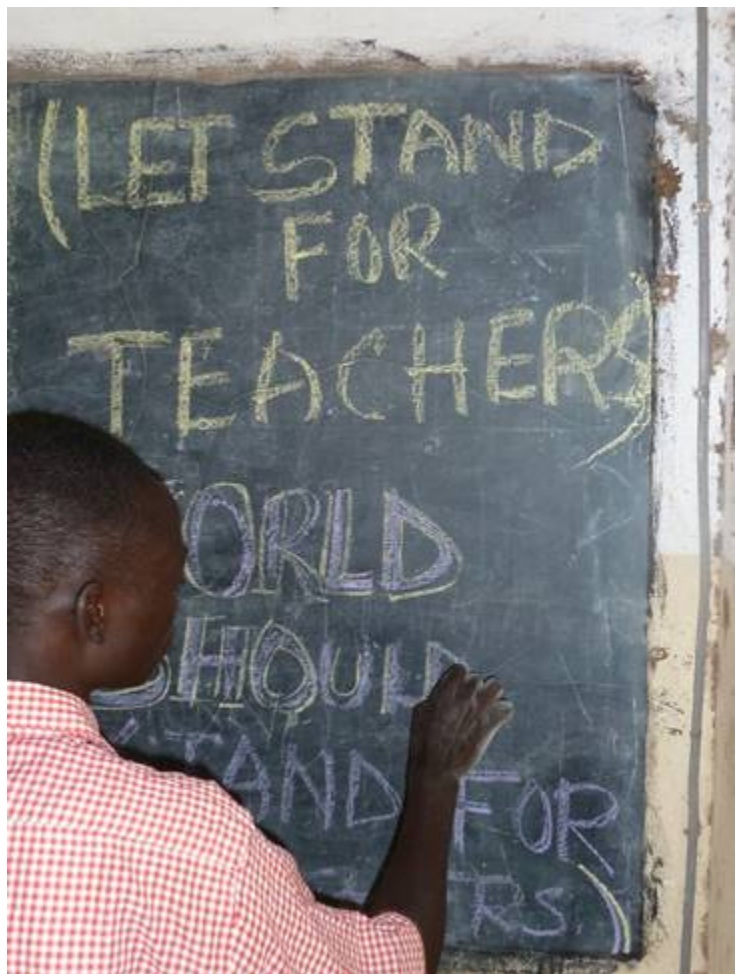 (LET STAND
FOR
TEACHERS)
WORLD
SHOULD
STAND FOR